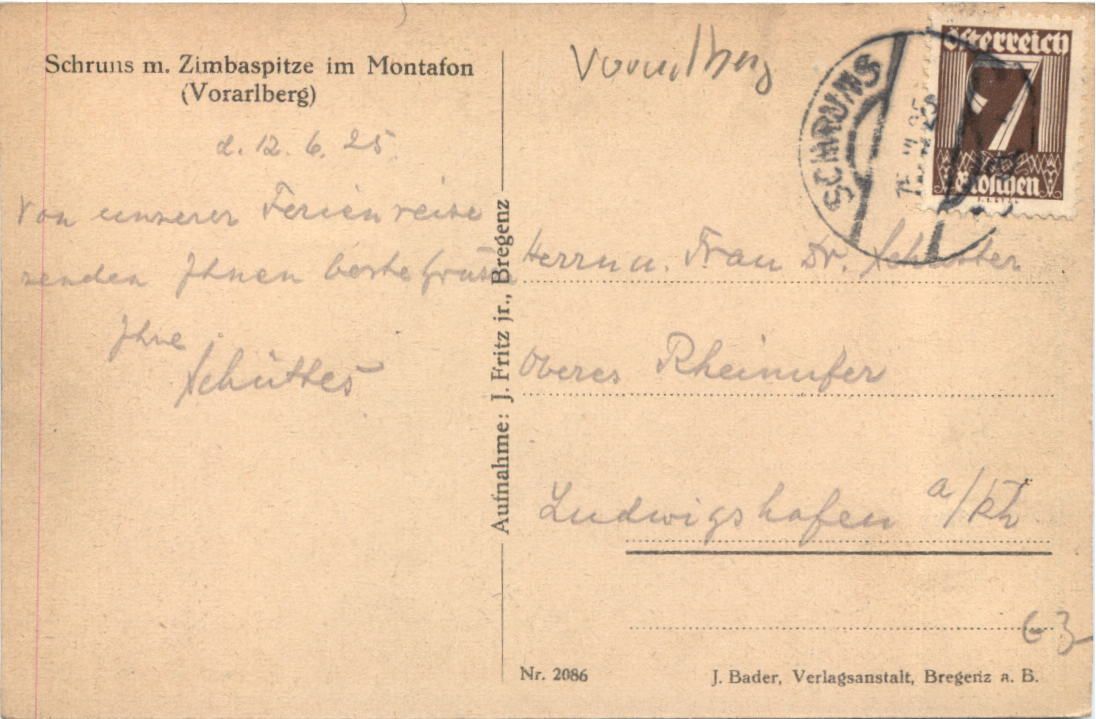 Schruns m. Zimbaspitze im Montafon
(Vorarlberg)
d. 12. 6. 25.
Von unserer Ferienreise
senden Ihnen beste Grüße
Ihre
Schüttes
Aufnahme: J. Fritz jr., Bregenz
Vorarlberg
SCHRUNS
Österreich
7
Groschen
Herrn u. Frau Dr.
Oberes Rheinufer
Ludwigshafen a/Rh
63
Nr. 2086
J. Bader, Verlagsanstalt, Bregenz a. B.